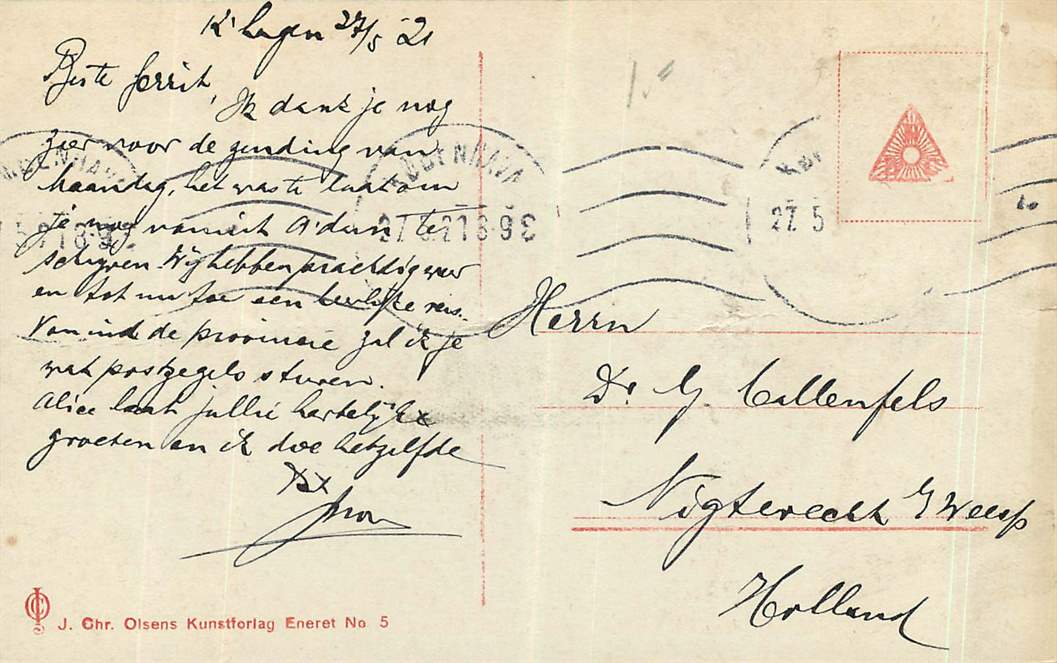 K'hagen 27/5 21
Beste Gerrit,
Ik dank je nog
zeer voor de zending van
Maandag, het was te laat om
je nog vanuit A'dam te
schrijven. Wij hebben prachtig weer
en tot nu toe een heerlijke reis.
Vanuit de provincie zal ik je
wat postzegels sturen.
Alice laat jullie hartelijk
groeten en ik doe hetzelfde
KØBENHAVN
27. 5. 21 8-9 E
27. 5
Herrn
Dr. G. Callenfels
Nigtevecht b/ Weesp
Holland
J. Chr. Olsens Kunstforlag Eneret No 5